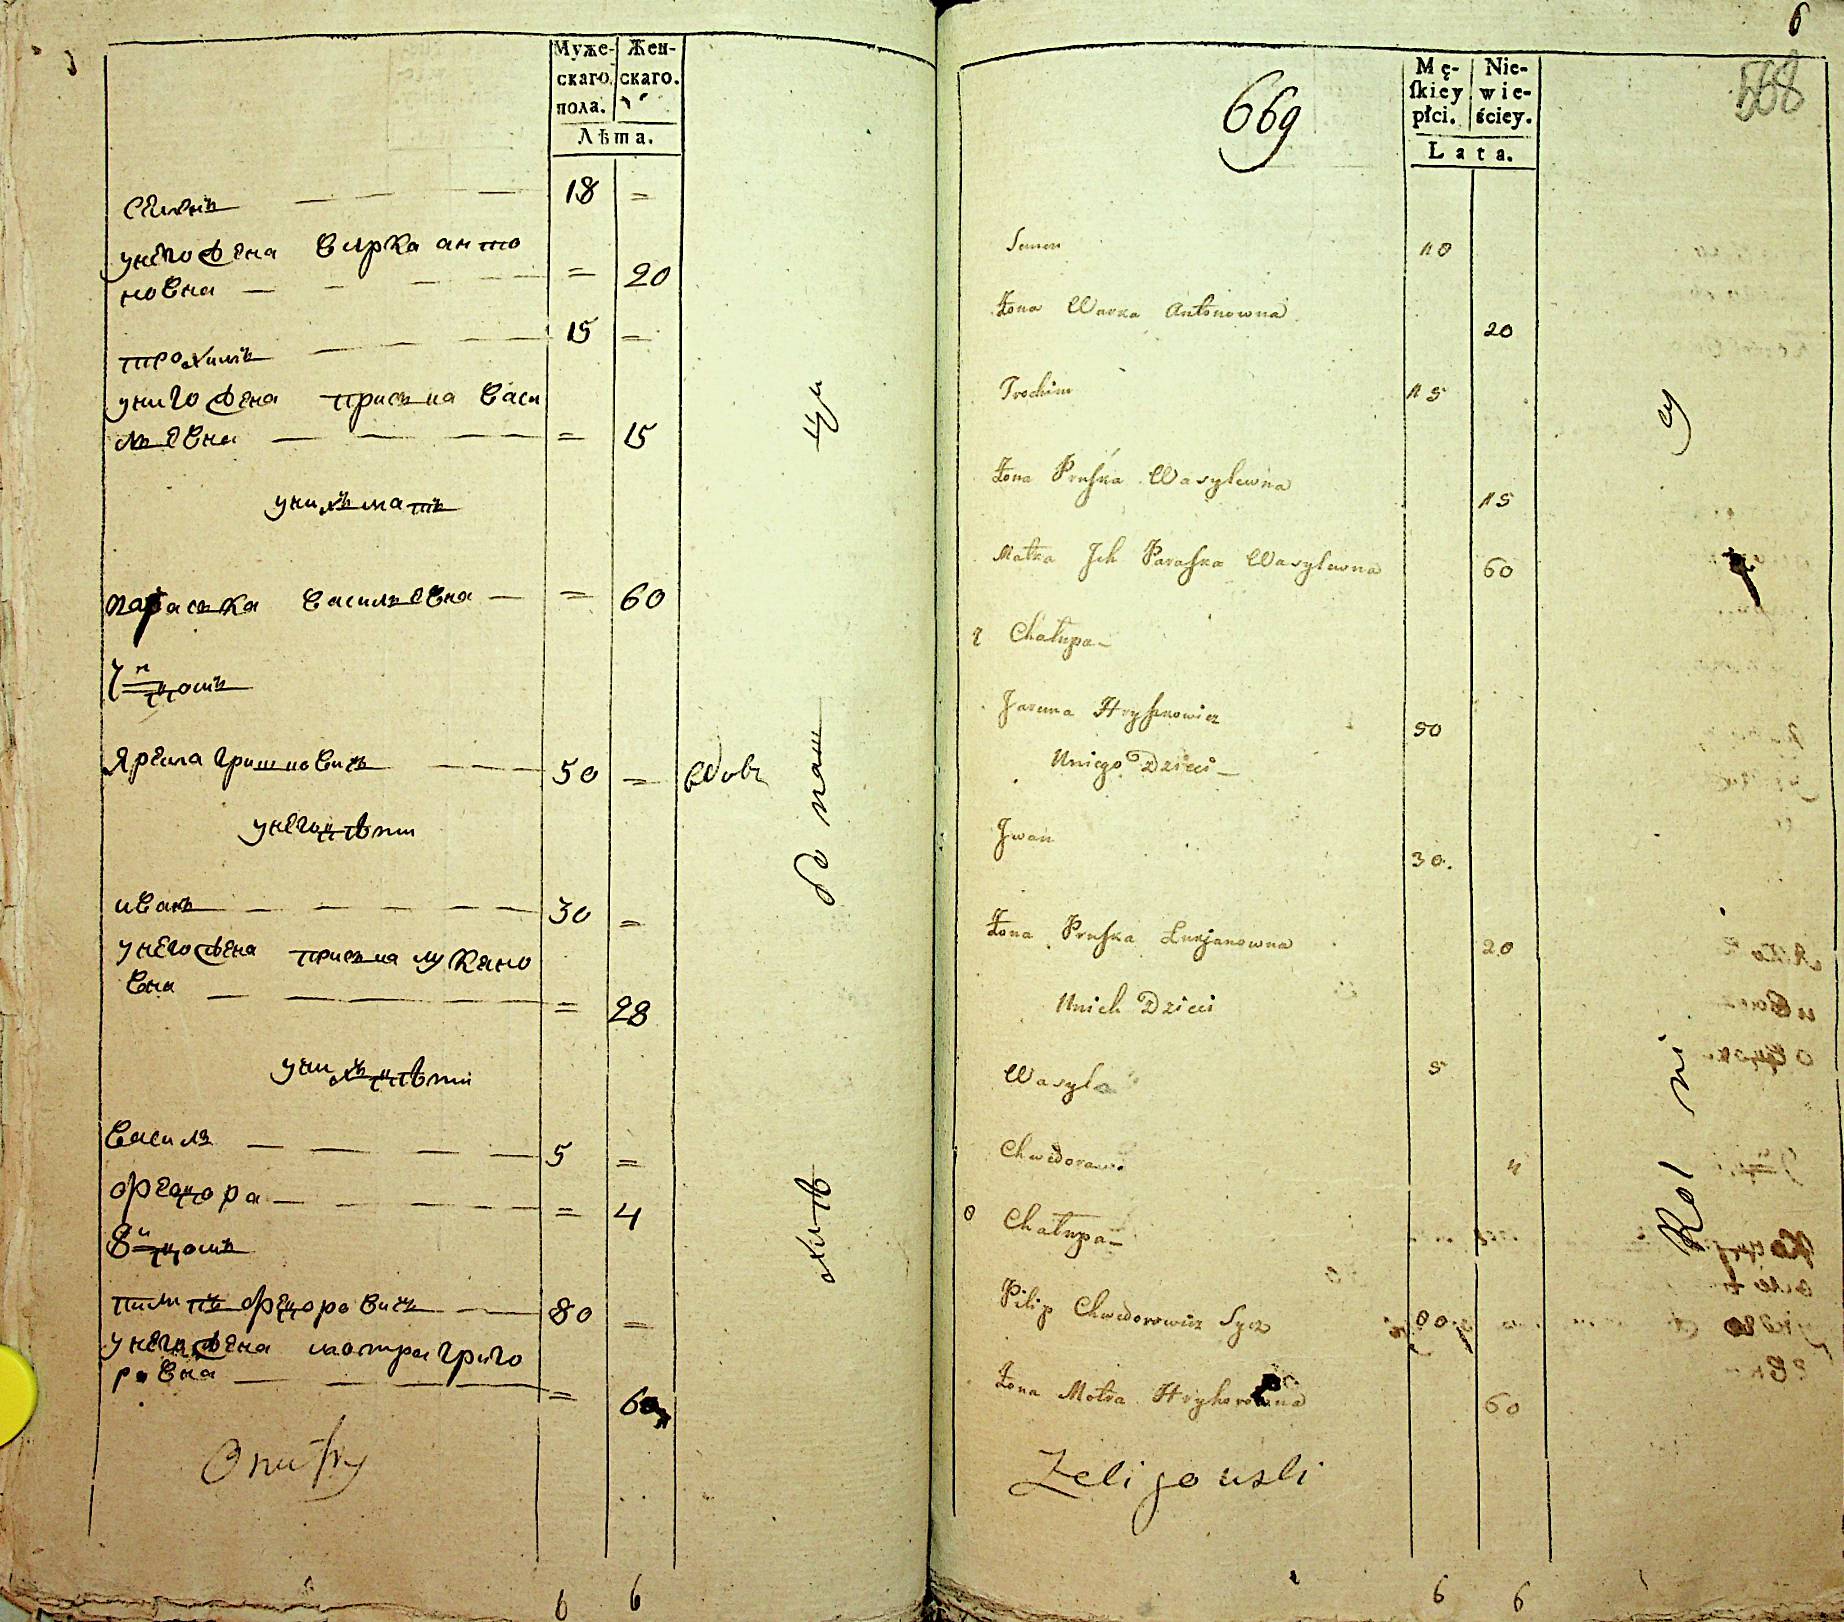 Муже-
скаго
пола.
Жен-
скаго.
Лѣта.
Семенъ 18 =
унего жена Варка анто
новна = 20
трохимъ 15 =
униго жена приська васи
льевна = 15
унихъ мать
параська васильевна = 60
7й домъ
Ярема гришковичь 50 = вдовъ
унего дѣти
иванъ 30 =
унего жена приська лукяно
вна = 28
унихъ дѣти
василь 5 =
федора = 4
8й домъ
пилипъ федоровичь 80 =
унего жена мотра григо
ровна = 60
6 6
6
568
669
Mę-
ſkiey
płci.
Nie-
wie-
ściey.
Lata.
Semen
Żona Warka Antonowna 20
Trochim 15
Żona Pruska Wasylewna 15
Matka Ich Paraska Wasylewna 60
Chałupa
Jarema Hryszkowicz 50
Uniego Dzieci
Iwan 30.
Żona Pruska Łukjanowna 20
Unich Dzieci
Wasyl 5
Chwedora
Chałupa
Pilip Chwedorowicz Sycz 80
Żona Motra Hryhorowna 60
6 6